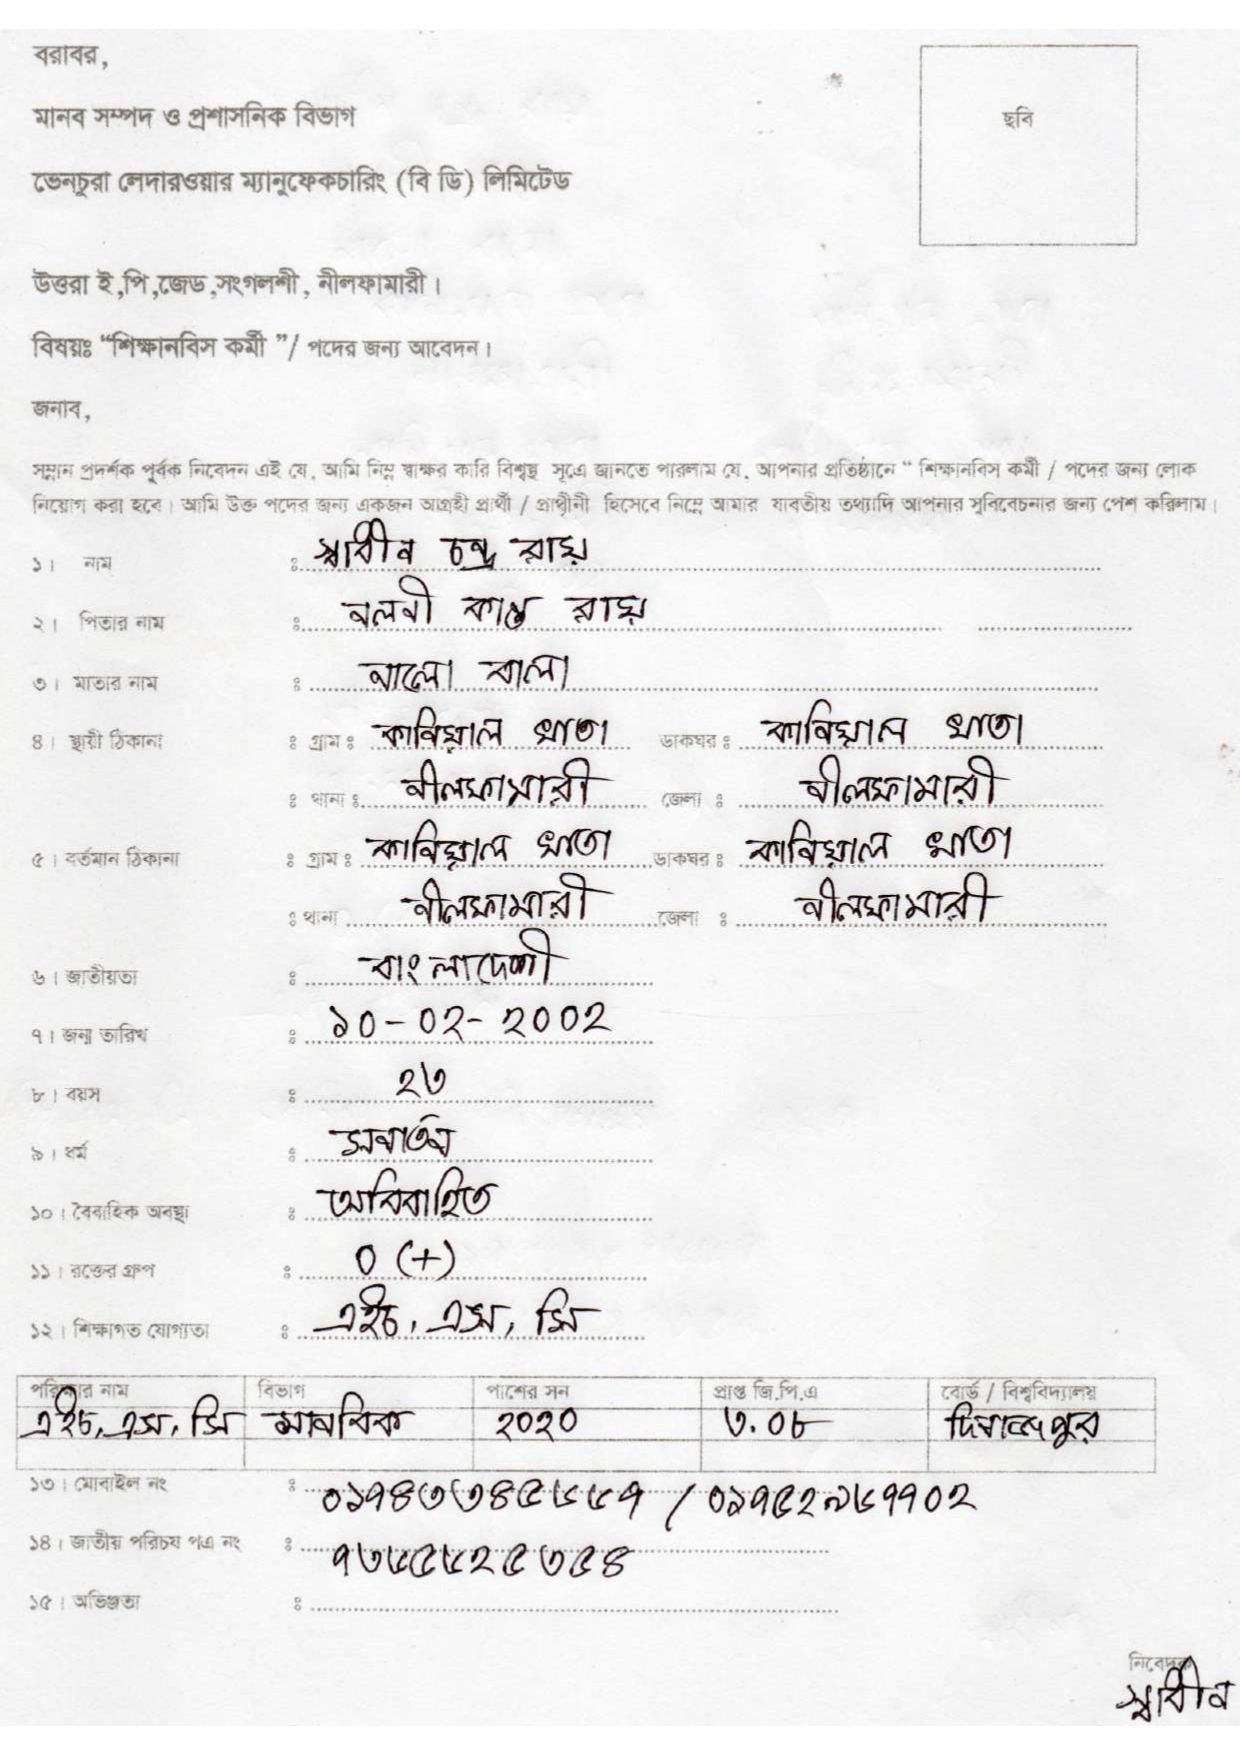 বরাবর,
ছবি
মানব সম্পদ ও প্রশাসনিক বিভাগ
ভেনচুরা লেদারওয়ার ম্যানুফেকচারিং (বি ডি) লিমিটেড
উত্তরা ই,পি,জেড,সংগলশী, নীলফামারী।
বিষয়ঃ “শিক্ষানবিস কর্মী ”/ পদের জন্য আবেদন।
জনাব,
সম্মান প্রদর্শক পূর্বক নিবেদন এই যে, আমি নিম্ন স্বাক্ষর কারি বিশ্বস্থ সূত্রে জানতে পারলাম যে, আপনার প্রতিষ্ঠানে “ শিক্ষানবিস কর্মী / পদের জন্য লোক
নিয়োগ করা হবে। আমি উক্ত পদের জন্য একজন আগ্রহী প্রার্থী / প্রার্থীনী হিসেবে নিম্নে আমার যাবতীয় তথ্যাদি আপনার সুবিবেচনার জন্য পেশ করিলাম।
১। নাম ঃ স্বাধীন চন্দ্র রায়
২। পিতার নাম ঃ নলনী কান্ত রায়
৩। মাতার নাম ঃ আলো বালা
৪। স্থায়ী ঠিকানা ঃ গ্রাম ঃ কানিয়াল খাতা ডাকঘর ঃ কানিয়াল খাতা
ঃ থানা ঃ নীলফামারী জেলা ঃ নীলফামারী
৫। বর্তমান ঠিকানা ঃ গ্রাম ঃ কানিয়াল খাতা ডাকঘর ঃ কানিয়াল খাতা
ঃ থানা নীলফামারী জেলা ঃ নীলফামারী
৬। জাতীয়তা ঃ বাংলাদেশী
৭। জন্ম তারিখ ঃ ১০-০২-২০০২
৮। বয়স ঃ ২৩
৯। ধর্ম ঃ সনাতন
১০। বৈবাহিক অবস্থা ঃ অবিবাহিত
১১। রক্তের গ্রুপ ঃ O (+)
১২। শিক্ষাগত যোগ্যতা ঃ এইচ, এস, সি
পরিক্ষার নাম বিভাগ পাশের সন প্রাপ্ত জি.পি.এ বোর্ড / বিশ্ববিদ্যালয়
এইচ, এস, সি মানবিক ২০২০ ৩.০৮ দিনাজপুর
১৩। মোবাইল নং ঃ ০১৭৪৩৩৪৫৬৬৭ / ০১৭৫২৯৬৭৭০২
১৪। জাতীয় পরিচয পএ নং ঃ ৭৩৬৫৬২৫৩৫৪
১৫। অভিজ্ঞতা ঃ
নিবেদক
স্বাধীন